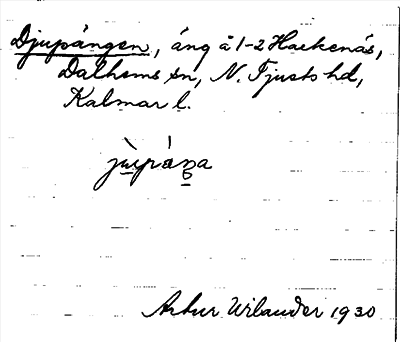 Djupängen, äng å 1-2 Hackenäs,
Dalhems sn, N. Tjusts hd,
Kalmar l.
Artur Wilander 1930